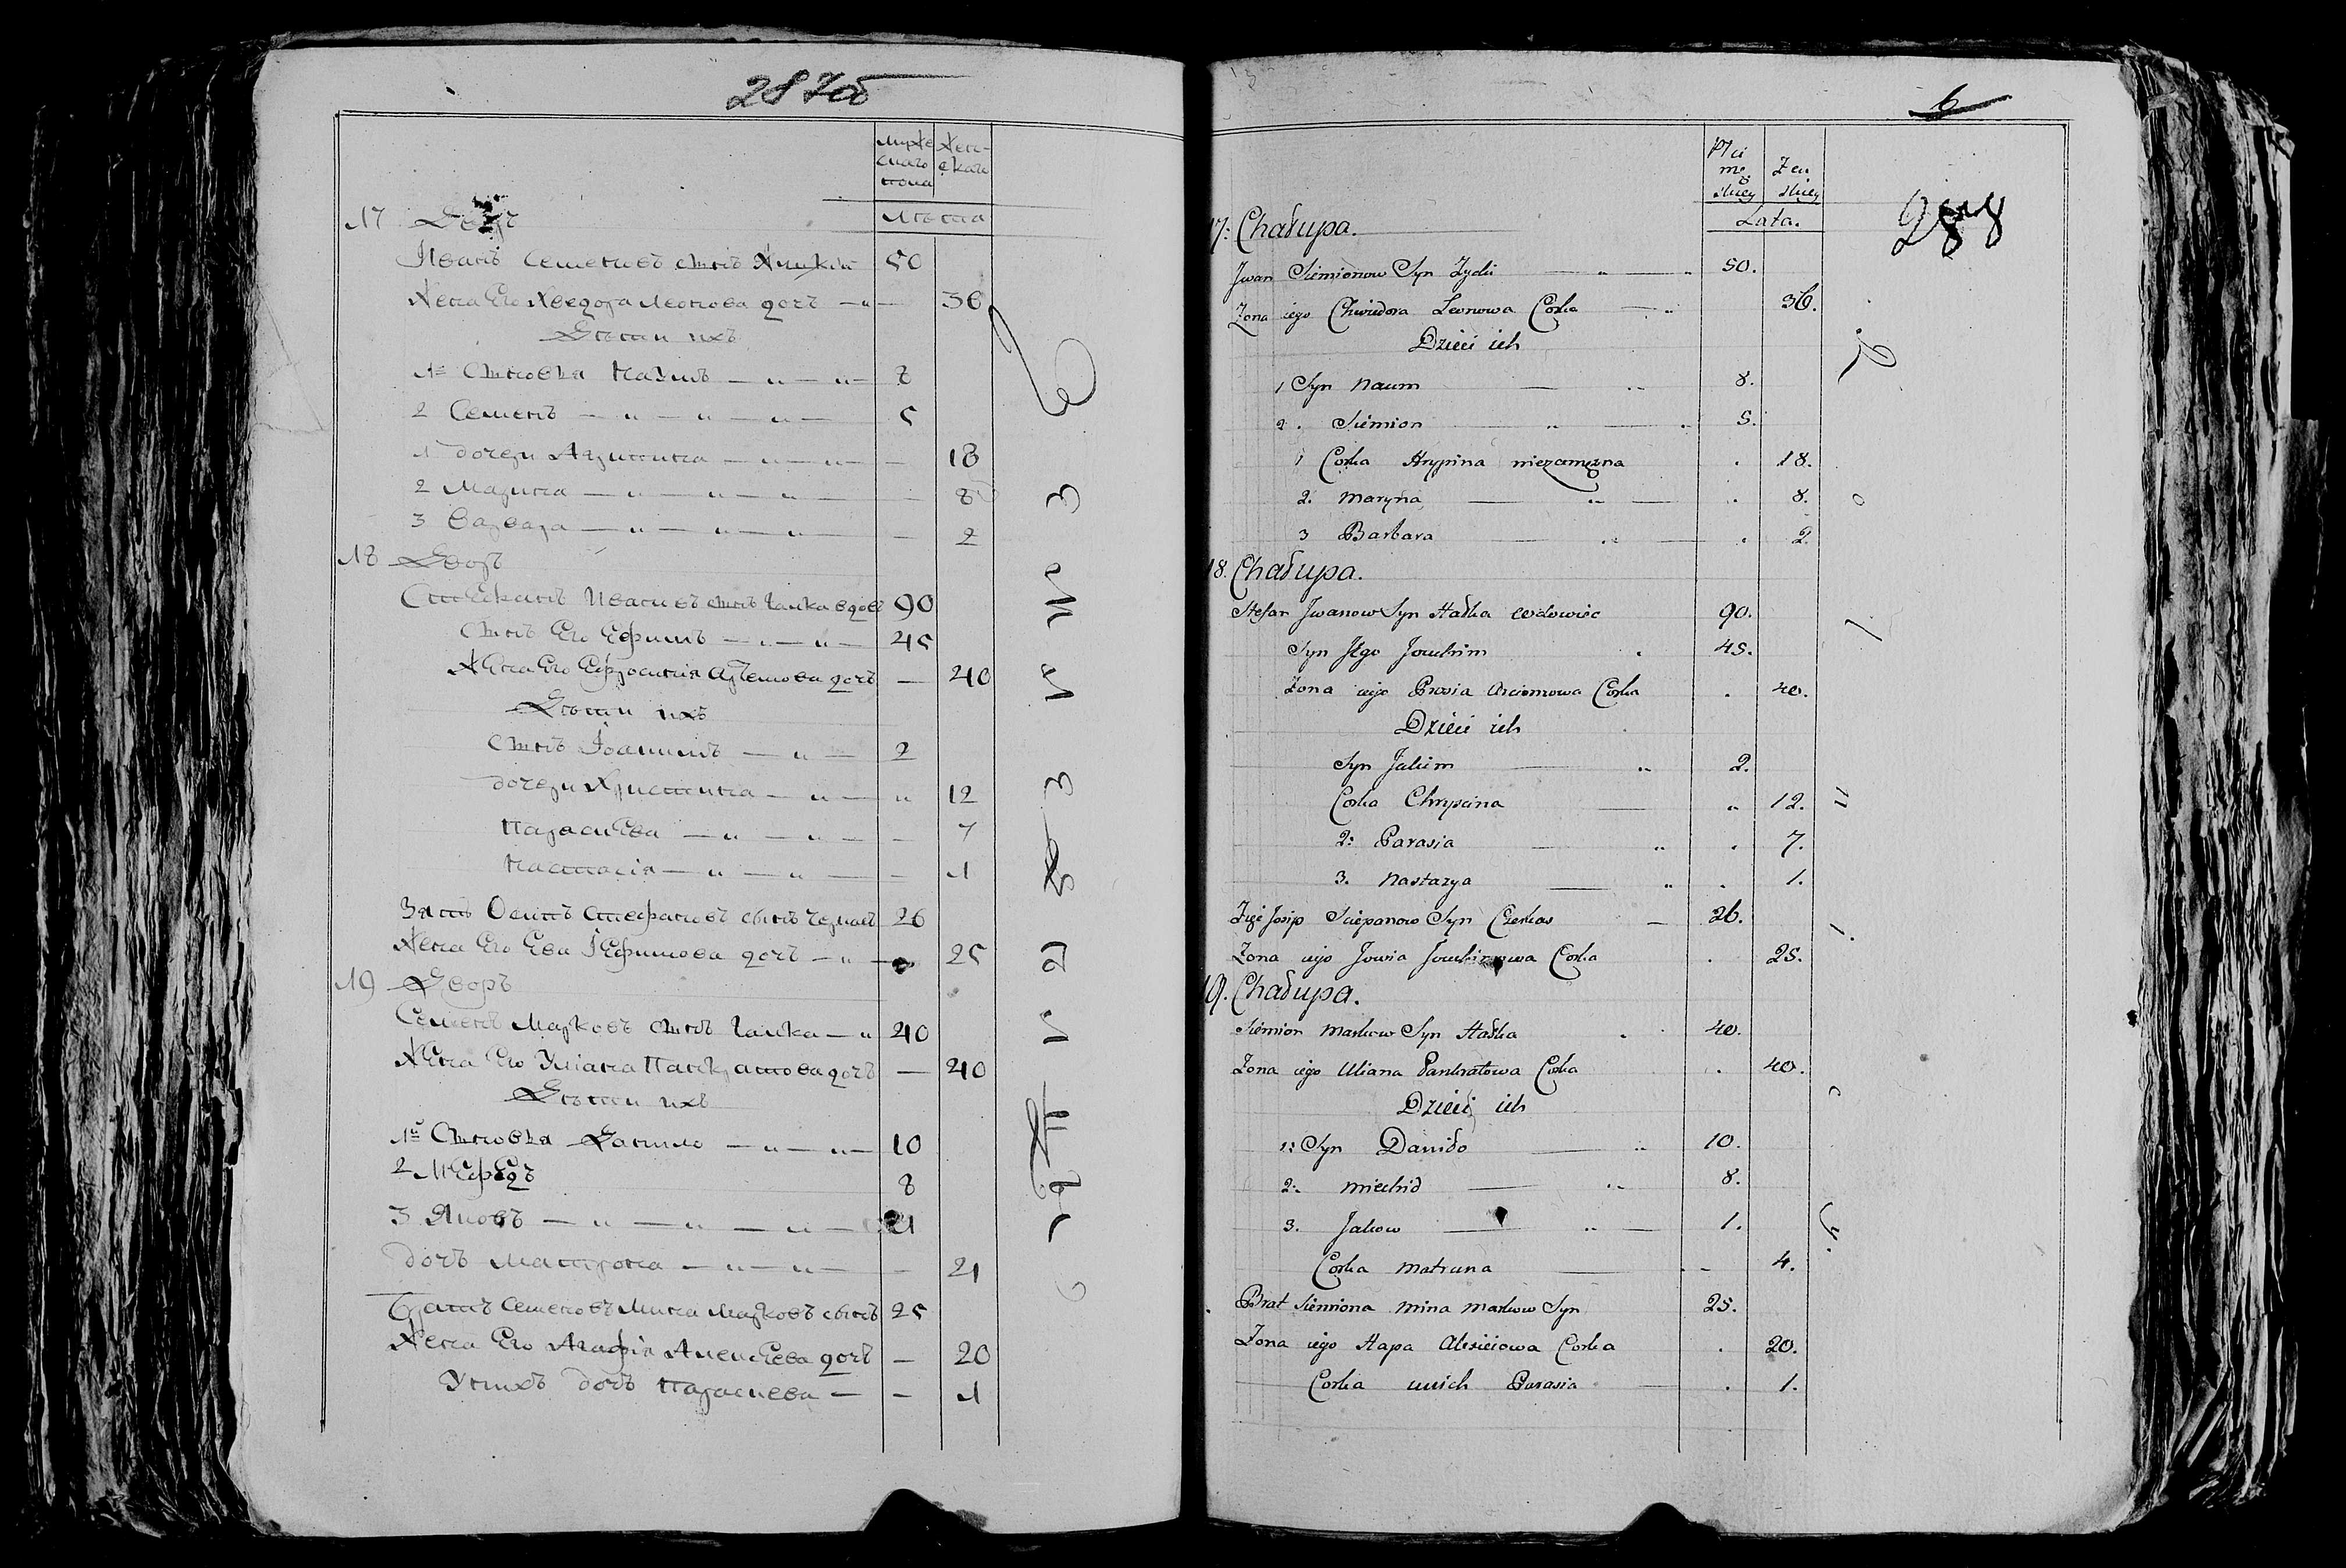 287об
Мужескаго пола
Женскаго
Лѣта
17 Дворъ
Иванъ Семеновъ сынъ 50
Жена Его Хведора Леонова дочъ — „ — 36
Дѣти ихъ
1й Сыновья Наумъ — „ — „ — 8
2 Семенъ — „ — „ — „ — 5
1 дочери Агрипина — „ — „ — — 18
2 Марина — „ — „ — „ — — 8
3 Варвара — „ — „ — „ — — 2
18 Дворъ
Стефанъ Ивановъ сынъ Галка вдов 90
Сынъ Его Ефимъ — „ — „ — 45
Жена Его Ефросинія Артемова дочъ — 40
Дѣти ихъ
Сынъ Іоакимъ — „ — 2
дочери Христина — „ — „ 12
Параскева — „ — „ — — 7
Настасія — „ — „ — — 1
Зять Осипъ Стефановъ сынъ 26
Жена Его Ева Ефимова дочъ — „ — 25
19 Дворъ
Семенъ Марковъ сынъ Галка — „ 40
Жена Его Уліана Панкратова дочъ — 40
Дѣти ихъ
1й Сыновья Данило — „ — „ — 10
2 Мефедъ 8
3 Яковъ — „ — „ — „ — 1
дочъ Матрона — „ — „ — — 4
Братъ Семеновъ Мина Марковъ сынъ 25
Жена Его Агафія Алексеева дочъ — 20
У нихъ дочъ Параскева — — 1
6
288
Męzkiey
Zenskiey
Lata.
17: Chałupa.
Jwan Siemionow Syn — „ — „ 50.
Zona iego Chwiedora Leonowa Corka — „ 36.
Dzieci ich
1 Syn Naum — „ 8.
2. Siemion — „ — „ 5.
1 Corka Hrypina niezamężna . 18.
2. Maryna — „ — . 8.
3 Barbara — „ — . 2.
18. Chałupa.
Stefan Jwanow Syn Hałka wdowiec 90.
Syn Jego Jouchim . 45.
Zona iego Prosia Arciomowa Corka . 40.
Dzieci ich
Syn Jakim — „ 2.
Corka Chryscina — „ 12.
2: Parasia — „ . 7.
3. Nastazya — „ . 1.
Zięć Josip Sciepanow Syn Czerkas — 26.
Zona iego Jowia Jouchimowa Corka . 25.
19. Chałupa.
Siemion Markow Syn Hałka . 40.
Zona iego Uliana Pankratowa Corka . 40.
Dzieci ich
1: Syn Daniło — „ 10.
2: Miechid — „ 8.
3. Jakow — „ — 1.
Corka Matruna — . - 4.
Brat Siemiona Mina Markow Syn 25.
Zona iego Hapa Alexieiowa Corka . 20.
Corka unich Parasia — . 1.